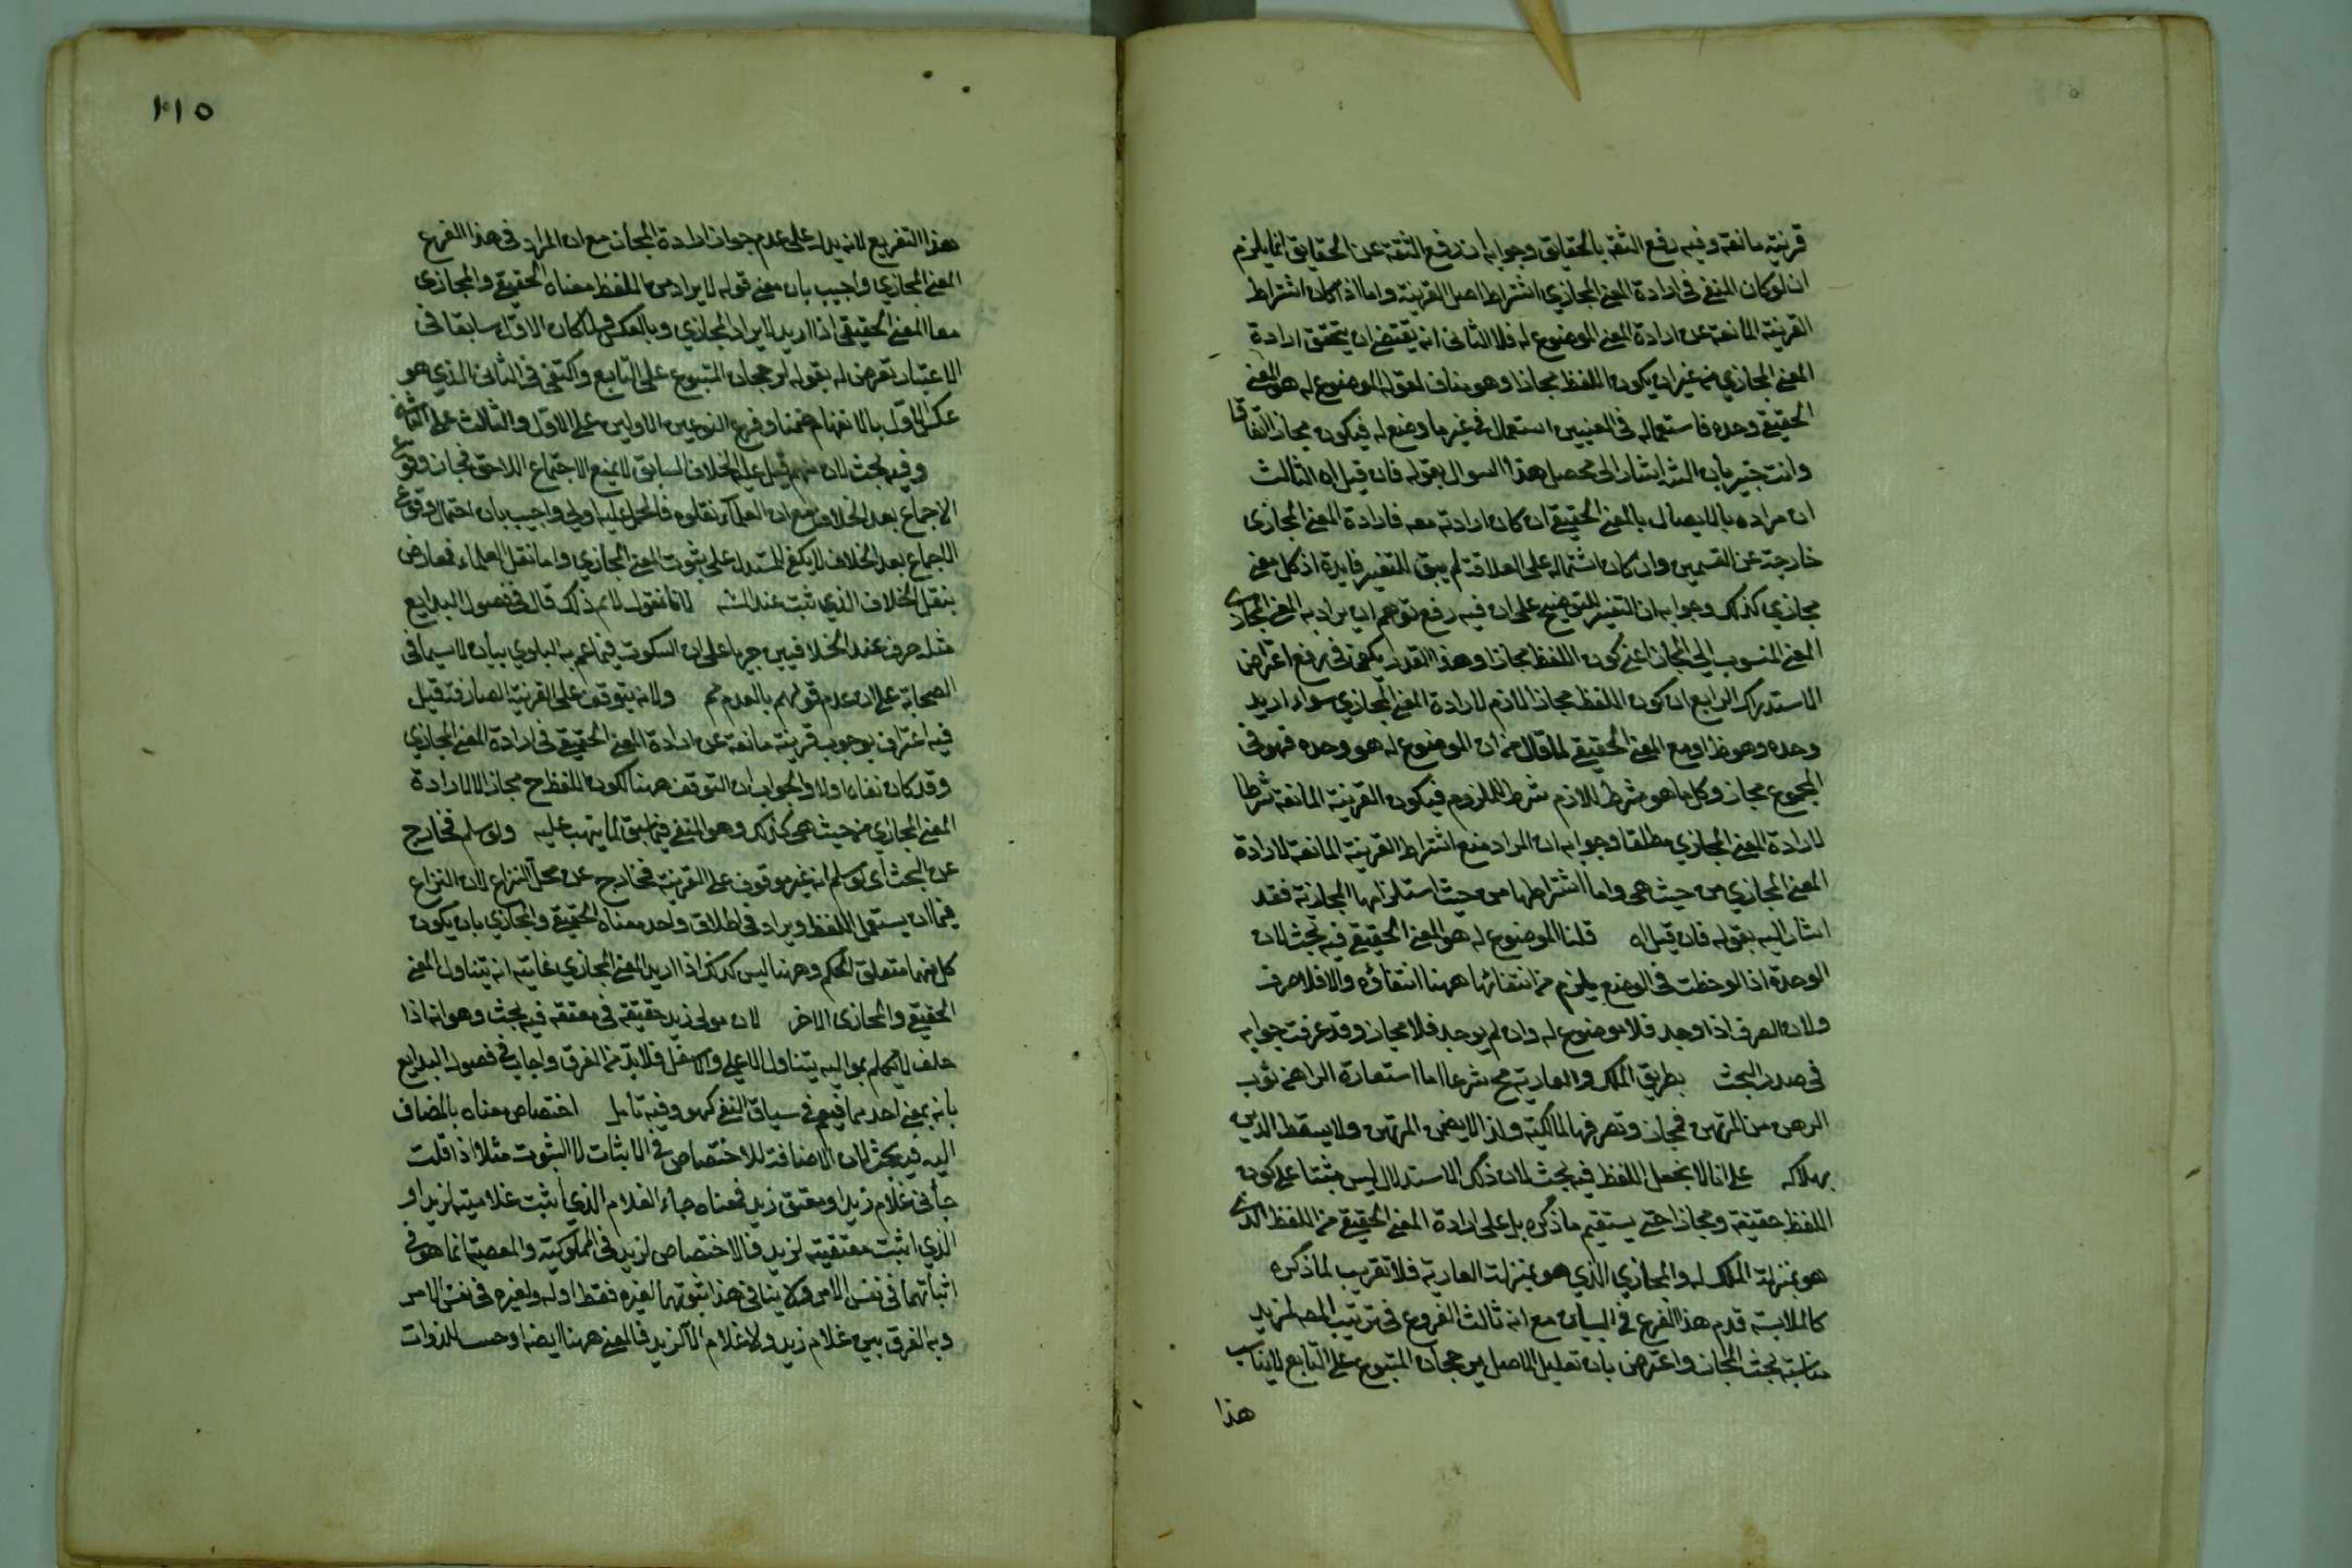 قرينة مانعة وفيه رفع الثقة بالحقايق وجوابه ان رفع الثقة عن الحقايق انما يلزم
ان لو كان المنفي في ارادة المعنى المجازي اشتراط اصل القرينة واما اذا كان اشتراط
القرينة المانعة عن ارادة المعنى الموضوع له فلا الثانى انه يقتضى ان يتحقق ارادة
المعنى المجازي من غير ان يكون اللفظ مجازا وهو مناف لقوله الموضوع له هو المعنى
الحقيقي وحده فاستعماله في المعنيين استعمال في غير ما وضع له فيكون مجازا اتفاقا
وانت خبير بان الشه اشار الى محصل هذا السوال بقوله فان قيل اه الثالث
ان مراده بالايصال بالمعنى الحقيقي ان كان ارادته معه فارادة المعنى المجازى
خارجة عن القسمين وان كان اشتماله على العلاقة لم يبق للتفسير فايدة اذ كل معنى
مجازي كذلك وجوابه ان التفسير للتوضيح على ان فيه رفع توهم ان يراد به المعنى المجازي
المعنى المنسوب الى المجاز اعنى كون اللفظ مجازا وهذا القدر يكفى فى رفع اعتراض
الاستدراك الرابع ان كون اللفظ مجازا لازم لارادة المعنى المجازي سواء اريد
وحده وهو ظ او مع المعنى الحقيقي لما قال من ان الموضوع له هو وحده فهو في
المجموع مجاز وكل ما هو شرط للازم شرط للملزوم فيكون القرينة المانعة شرطا
لارادة المعنى المجازي مطلقا وجوابه ان المراد منع اشتراط القرينة المانعة لارادة
المعنى المجازي من حيث هي واما اشتراطها من حيث استلزامها المجازية فقد
اشار اليه بقوله فان قيل اه قلنا الموضوع له هو المعنى الحقيقي فيه بحث لان
الوحدة اذا لوحظت في الوضع يلزم من انتفائها ههنا انتفاؤه والا فلا صرف
ولان الصرف اذا وجد فلا موضوع له وان لم يوجد فلا مجاز وقد عرفت جوابه
في صدر البحث بطريق الملك والعارية مح شرعا اما استعارة الراهن ثوب
الرهن من المرتهن فمجاز وتصرفها لمالكيته ولذا لا يضمن المرتهن ولا يسقط الدين
بهلاكه على انا لا نجعل اللفظ فيه بحث لان ذلك الاستدلال ليس مبتنيا على كون
اللفظ حقيقة ومجازا حتى يستقيم ما ذكره بل على ارادة المعنى الحقيقي من اللفظ الذي
هو بمنزلة الملك له والمجازي الذي هو بمنزلة العارية فلا تقريب لما ذكره
كالملابسة قدم هذا الفرع في البيان مع انه ثالث الفروع في ترتيب المصه لمزيد
مناسبة بحث المجاز واعترض بان تعليل الاصل برجحان المتبوع على التابع لا يناسب
هذا
١١٥
هذا التفريع لانه يدل على عدم جواز ارادة المجاز مع ان المراد في هذا الفرع
المعنى المجازي واجيب بان معنى قوله لا يراد من اللفظ معناه الحقيقي والمجازي
معا المعنى الحقيقي اذا اريد لا يراد المجازي وبالعكس ولما كان الاول سابقا في
الاعتبار تعرض له بقوله لرجحان المتبوع على التابع واكتفى في الثانى الذي هو
عكس الاول بالانفهام ضمنا وفرع النوعين الاولين على الاول والثالث على الثاني
وفيه بحث لان منهم قيل عليه الخلاف السابق لا يمنع الاجتماع اللاحق فجاز وقوع
الاجماع بعد الخلاف مع ان العلماء نقلوه فالحمل عليه اولى واجيب بان احتمال وقوع
الاجماع بعد الخلاف لا يكفي للمستدل على ثبوت المعنى المجازي واما نقل العلماء فمعارض
بنقل الخلاف الذي ثبت عند الشه لانا نقول لانم ذلك قال في فصول البدايع
مثله حرف عند الخلافيين جريا على ان السكوت فيما عم به البلوي بيان لا سيما في
الصحابة على ان عدم قولهم بالعدم مم ولانه يتوقف على القرينة الصارفة قيل
فيه اعتراف بوجوب قرينة مانعة عن ارادة المعنى الحقيقي في ارادة المعنى المجازي
وقد كان نفاه اولا والجواب ان التوقف ههنا لكون اللفظ ح مجازا لا لارادة
المعنى المجازي من حيث هي كذلك وهو المنفي فيما سبق لما ينهت عليه ولو سلم فخارج
عن البحث أي لو سلم انه غير موقوف على القرينة فخارج عن محل النزاع لان النزاع
فيما ان يستعمل اللفظ ويراد في اطلاق واحد معناه الحقيقي والمجازي بان يكون
كل منهما متعلق الحكم وههنا ليس كذلك اذا اريد المعنى المجازي غايته انه يتناول المعنى
الحقيقي والمجازى الاخر لان مولى زيد حقيقة في معتقه فيه بحث وهو انه اذا
حلف لا يكلم مواليه يتناول الاعلى والاسفل فلا بد من الفرق واجاب في فصول البدايع
بانه بمعنى احدهما فيعم في سياق النفي كهو وفيه تامل اختصاص معناه بالمضاف
اليه فيه بحث لان الاضافة للاختصاص في الاثبات لا الثبوت مثلا اذا قلت
جأني غلام زيد او معتق زيد فمعناه جاء الغلام الذي اثبت غلاميته لزيد او
الذي اثبت معتقيته لزيد فالاختصاص لزيد في المملوكية والمعتقية انما هو في
اثباتهما في نفس الامر ولا ينافي هذا ثبوتهما لغيره فقط او له ولغيره في نفس الامر
وبه الفرق بين غلام زيد ولا غلام الا لزيد فالمعنى ههنا ايضا اوصى للذوات